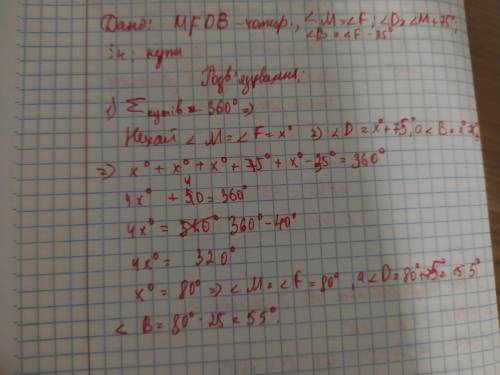 Дано: MFDB - чотир., ∠M = ∠F; ∠D = ∠M + 75°;
∠B = ∠F - 35°
Зн: кути
Розв'язування.
1) Σ кутів = 360° =>
Нехай ∠M = ∠F = x° => ∠D = x° + 75°, а ∠B = x°
=> x° + x° + x° + 75° + x° - 35° = 360°
4x° + 40 = 360°
4x° = 360° - 40°
4x° = 320°
x° = 80° => ∠M = ∠F = 80°, а ∠D = 80° + 75° = 155°
∠B = 80° - 25 = 55°.